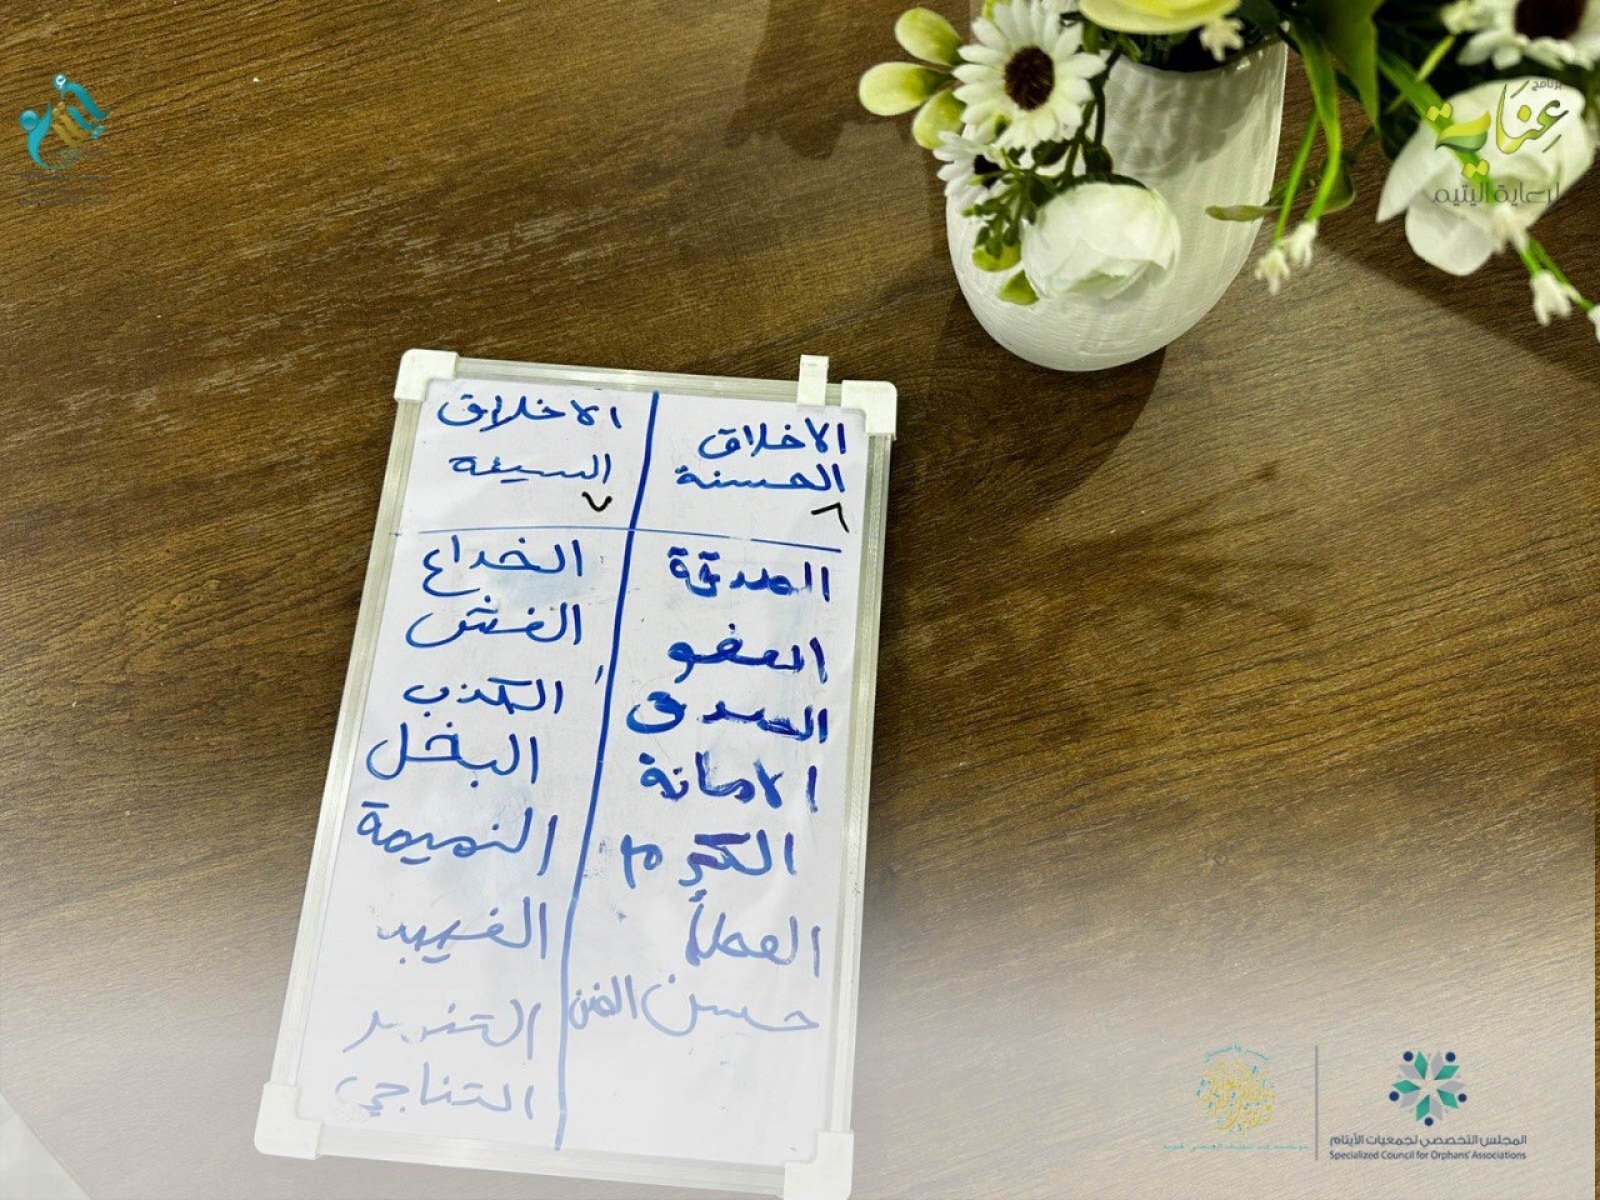 برنامج
عناية
لرعاية اليتيم
الاخلاق
الحسنة
٨
الصدقة
العفو
الصدق
الامانة
الكرم
العطأ
حسن الضن
الاخلاق
السيئة
٧
الخداع
الغش
الكذب
البخل
النميمة
التناجي
المجلس التخصصي لجمعيات الأيتام
Specialized Council for Orphans' Associations